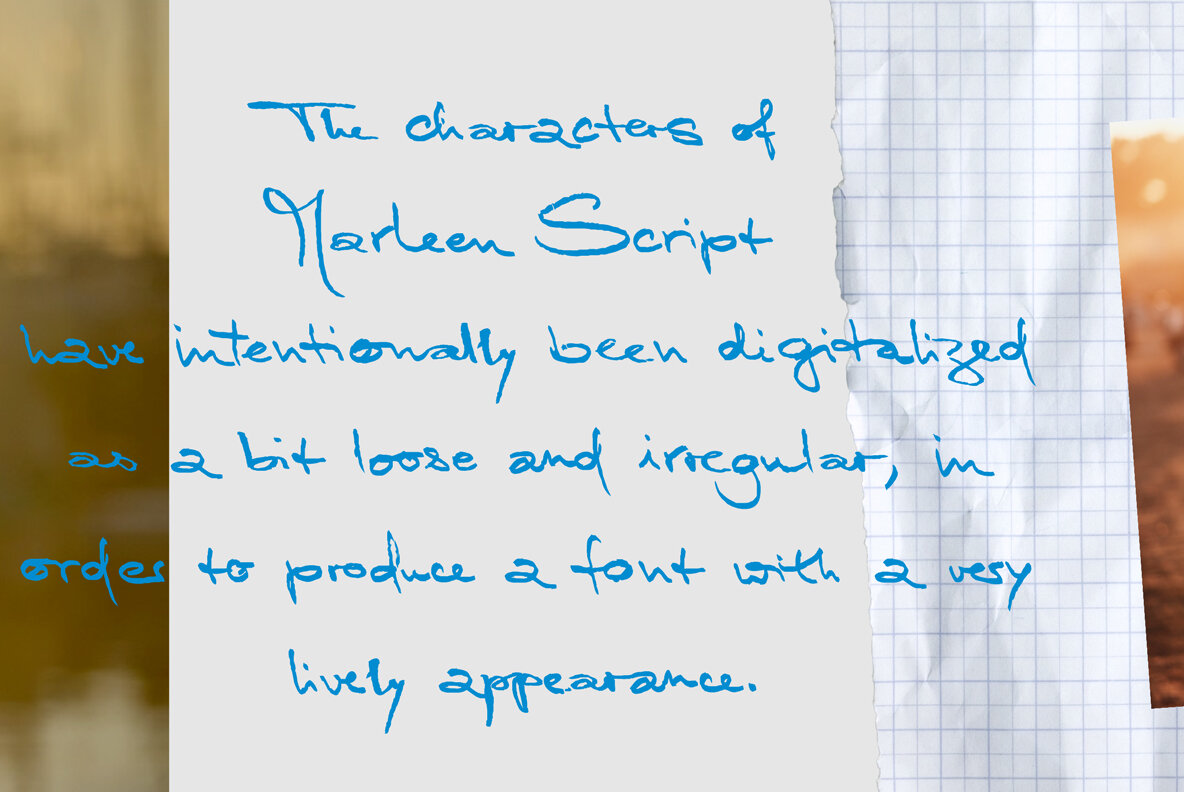 The characters of
Marleen Script
have intentionally been digitalized
as a bit loose and irregular, in
order to produce a font with a very
lively appearance.